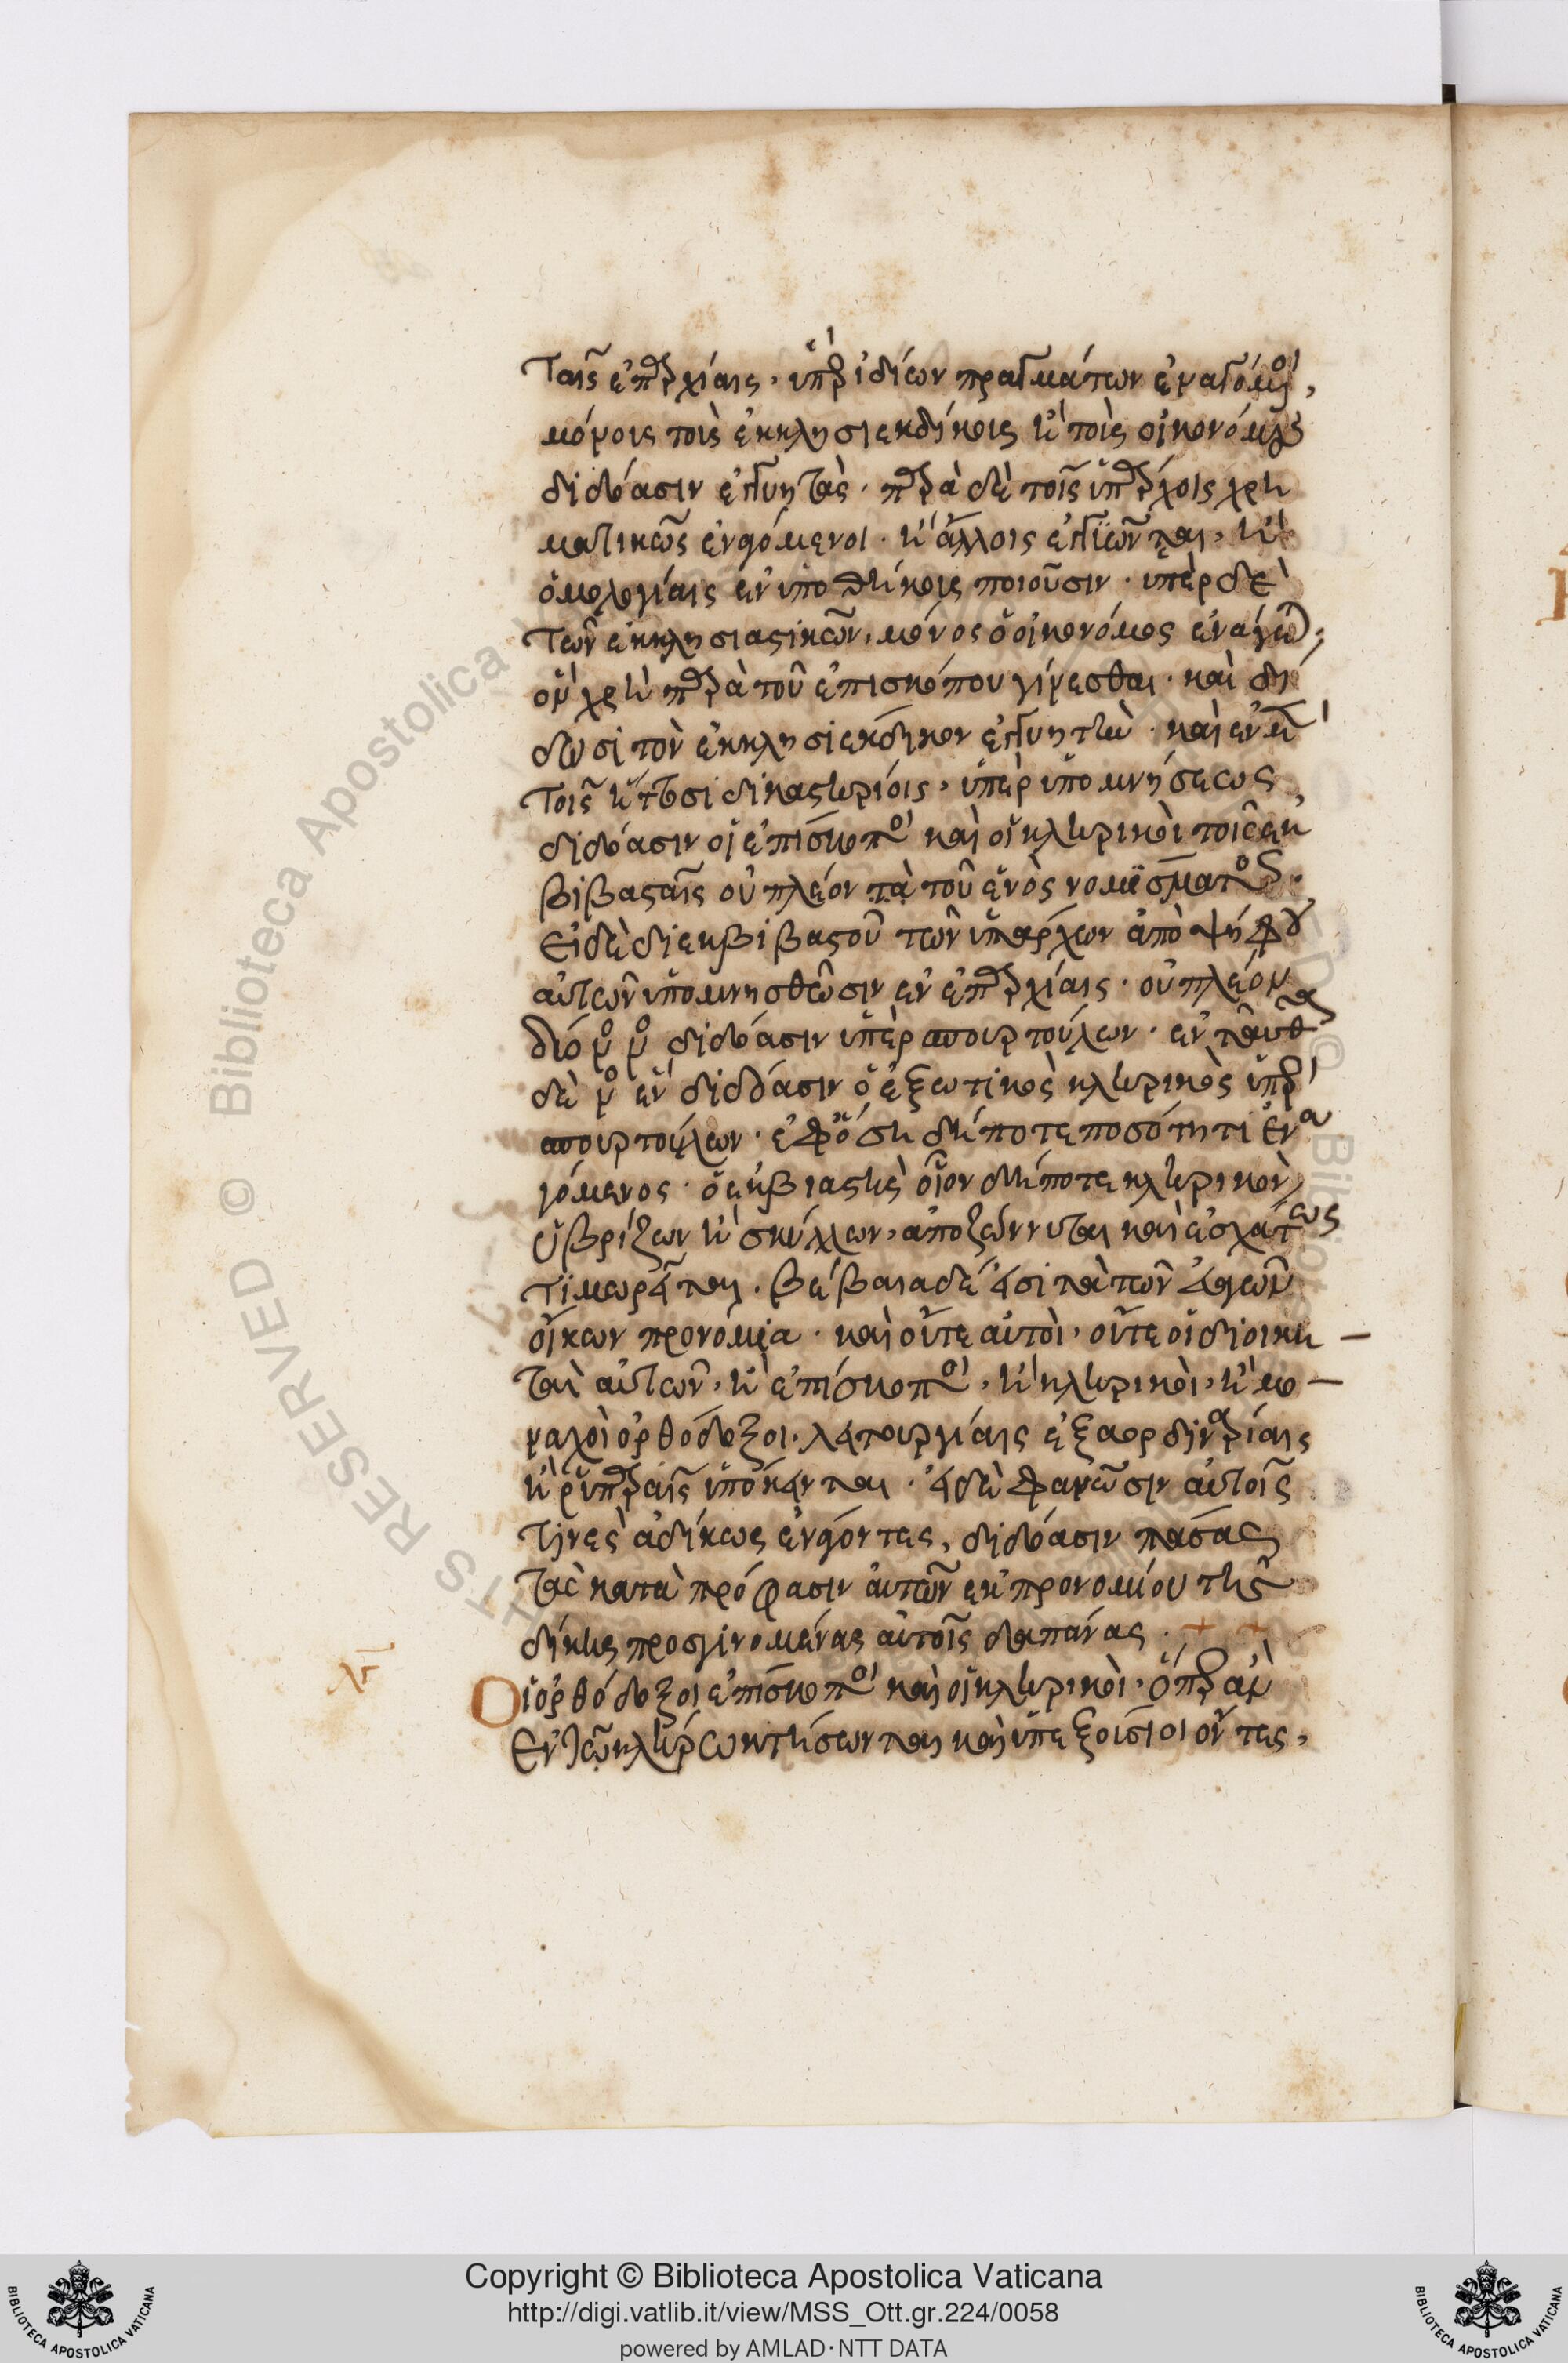 ταῖς ἐπαρχίαις, ὑπὲρ ἰδίων πραγμάτων ἐναγόμενοι,
μόνοις τοῖς ἐκκλησιεκδίκοις κ τοῖς οἰκονόμοις
διδόασιν ἐγγυητάς. παρὰ δὲ τοῖς ὑπάρχοις χρη
ματικῶς ἐναγόμενοι. κ ἄλλοις ἐγγυῶνται, κ
ὁμολογίαις ἐνυποθήκοις ποιοῦσιν. ὑπὲρ δὲ
τῶν ἐκκλησιαστικῶν, μόνος ὁ οἰκονόμος ἐνάγεται,
ὃν χρὴ παρὰ τοῦ ἐπισκόπου γίνεσθαι. καὶ δί
δωσι τὸν ἐκκλησιέκδικον ἐγγυητὴν. καὶ ἐν
τοῖς δικαστηρίοις, ὑπὲρ ὑπομνήσεως,
διδόασιν οἱ ἐπίσκοποι καὶ οἱ κληρικοὶ τοῖς ἐκ
βιβασταῖς οὐ πλέον τὰ τοῦ ἑνὸς νομίσματος.
εἰ δὲ δι ἐκβιβαστοῦ τῶν ὑπάρχων ἀπὸ ψήφου
αὐτῶν ὑπομνησθῶσιν ἐν ἐπαρχίαις. οὐ πλέον
δύο διδόασιν ὑπὲρ σπουρτούλων. ἐν ταύτῃ
δὲ ἓν διδόασιν ὁ ἐξωτικὸς κληρικὸς ὑπὲρ
σπουρτούλων. ἐφ ὅσῃ δήποτε ποσότητι ἐνα
γόμενος. ὁ ἐκβιαστὴς οἷον δήποτε κληρικὸν
ὑβρίζων κ σκύλλων, ἀποζώννυται καὶ ἐσχάτως
τιμωρεῖται. βέβαια δέ εἰσι τὰ τῶν ἁγίων
οἴκων προνόμια. καὶ οὔτε αὐτοὶ, οὔτε οἱ διοικη
ταὶ αὐτῶν, κ ἐπίσκοποι, κ κληρικοὶ, κ μο
ναχοὶ ὀρθόδοξοι, λειτουργίαις ἐξαορδιναρίαις
κ ῥυπαραῖς ὑπόκεινται. εἰ δὲ φανῶσιν αὐτοῖς
τινὲς ἀδίκως ἐνάγοντες, διδόασιν πάσας
τὰς κατὰ πρόφασιν αὐτῶν ἐκ προνομίου τῆς
δίκης προσγινομένας αὐτοῖς δαπάνας. + +
Οἱ ὀρθόδοξοι ἐπίσκοποι καὶ οἱ κληρικοὶ, ὅπερ ἂν
ἐν τῷ κλήρῳ κτήσωνται καὶ ὑπεξούσιοι ὄντες,
Copyright © Biblioteca Apostolica Vaticana
http://digi.vatlib.it/view/MSS_Ott.gr.224/0058
powered by AMLAD·NTT DATA